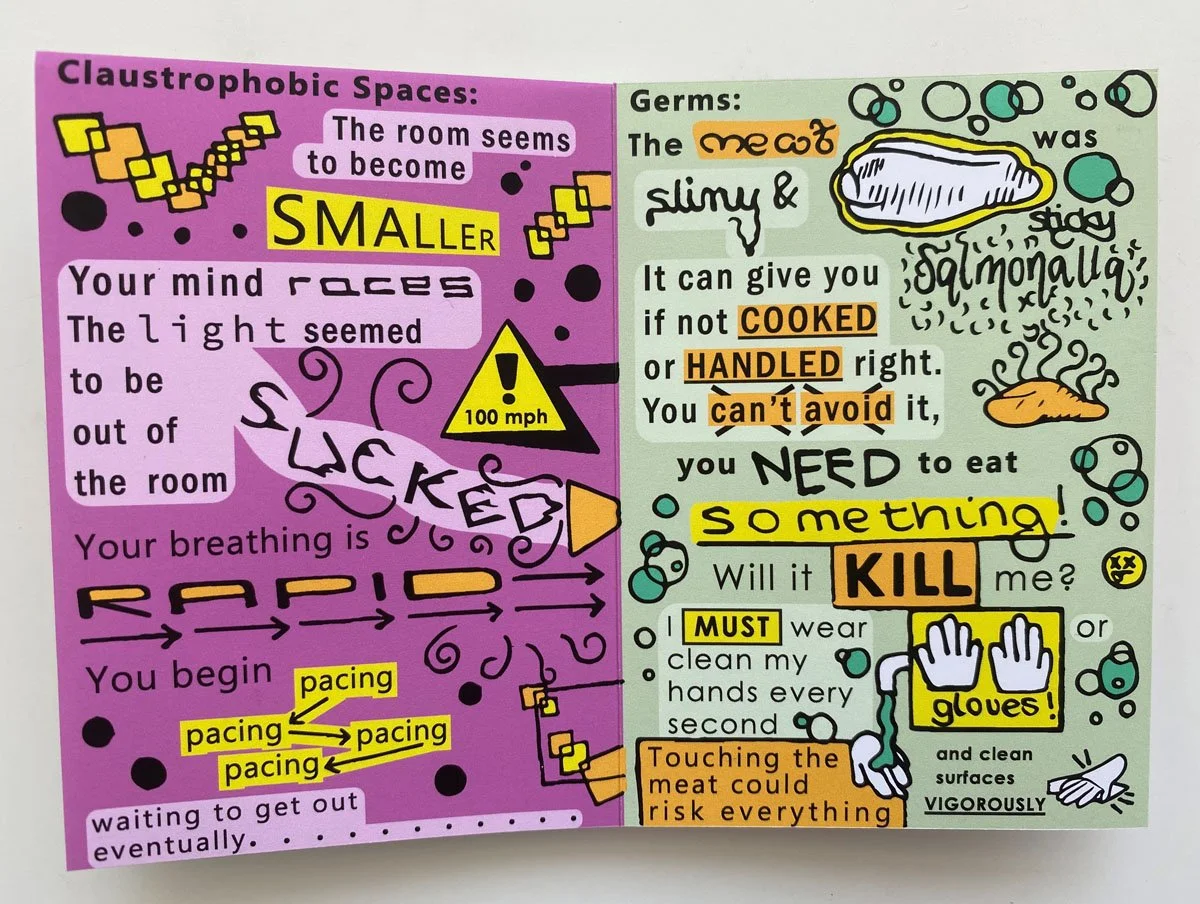 Claustrophobic Spaces:
The room seems
to become
SMALLER
Your mind races
The light seemed
to be
out of
the room
SUCKED
100 mph
Your breathing is
RAPID
You begin
pacing
pacing
pacing
pacing
waiting to get out
eventually. . . . . . . . . . .
Germs:
The meat was
slimy &
sticky
Salmonalla
It can give you
if not COOKED
or HANDLED right.
You can't avoid it,
you NEED to eat
something!
Will it KILL me?
I MUST wear
gloves!
or
clean my
hands every
second
and clean
surfaces
VIGOROUSLY
Touching the
meat could
risk everything